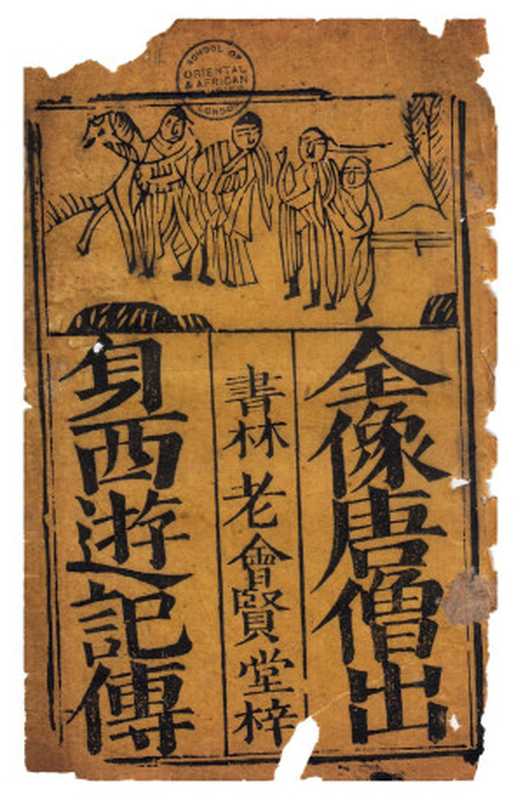 SCHOOL OF
ORIENTAL
& AFRICAN
LONDON
全像唐僧出
書林老會賢堂梓
身西遊記傳